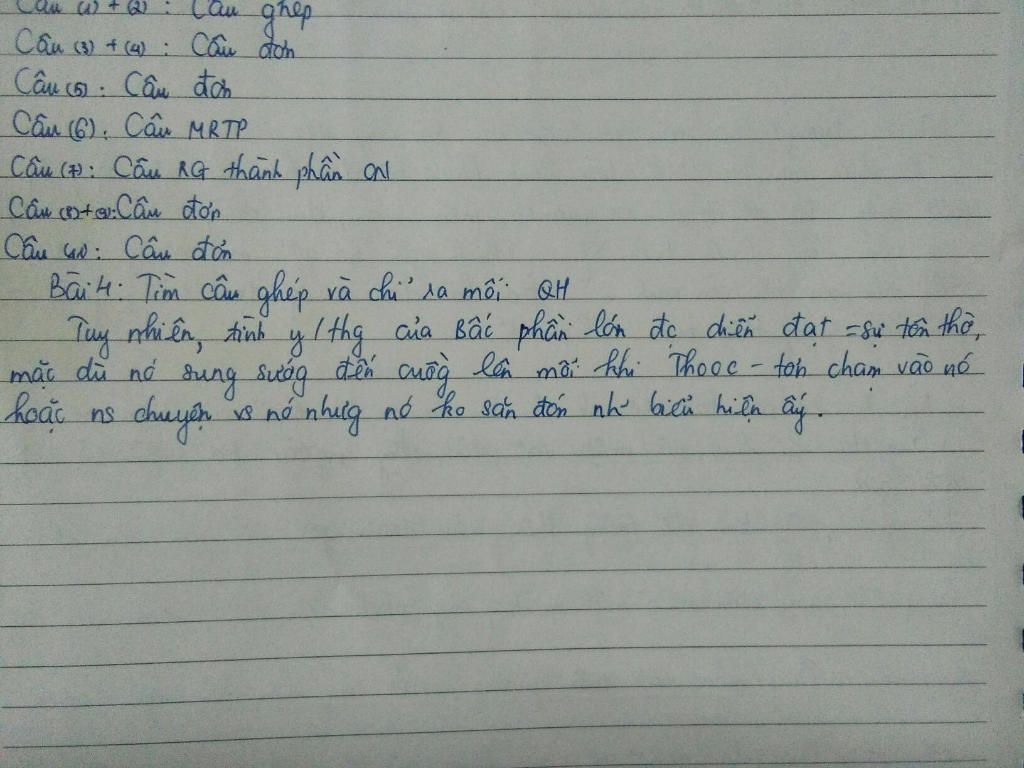 Câu (1) + (2) : Câu ghép
Câu (3) + (4) : Câu đơn
Câu (5) : Câu đơn
Câu (6) : Câu MRTP
Câu (7) : Câu RG thành phần CN
Câu (8)+(9): Câu đơn
Câu (10) : Câu đơn
Bài 4 : Tìm câu ghép và chỉ ra mối QH
Tuy nhiên, tình y/thg của Bấc phần lớn đc diễn đạt = sự tôn thờ,
mặc dù nó sung sướg đến cuồg lên mỗi khi Thooc - tơn chạm vào nó
hoặc ns chuyện vs nó nhưg nó ko săn đón nh~ biểu hiện ấy.